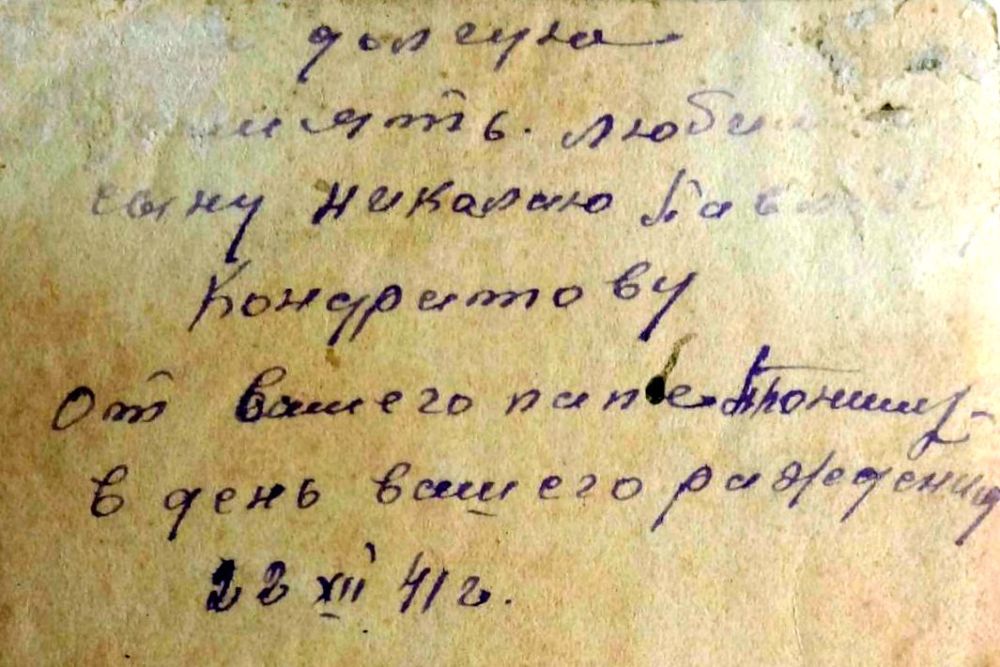 долгую
память. любим
сыну Николаю Павл
Кондратову
От вашего папе
в день вашего раждения
22 XII 41 г.